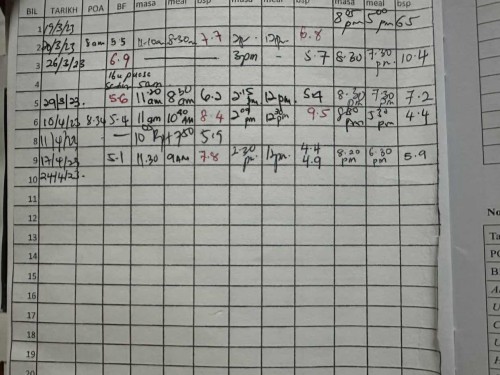 BIL TARIKH POA BF masa meal bsp masa meal bsp masa meal bsp
1 19/3/23 8 05 pm 5 00 pm 6.5
2 20/3/23 8am 5.5 8.30am 7.7 2pm 12pm 6.8
3 26/3/23 6.9 3pm - 5.7 8.30 7.30 pm 10.4
4
5 29/3/23. 5.6 11.20 am 8.30 am 6.2 2.15 pm 12pm 5.4 8.30 pm 7.30 pm 7.2
6 10/4/23 8.34 5.4 11am 10 am 8.4 2 pm 12 pm 9.5 pm pm 4.4
8 11/4/22 - 5.9
9 17/4/23 5.1 11.30 9am 7.8 2.30 pm. 12pm. 4.4 4.9 8.20 pm 6.30 pm 5.9
10 24/4/23.
11
12
13
14
15
16
17
18
19
20
No
Ta
PO
B
U
C
U
H